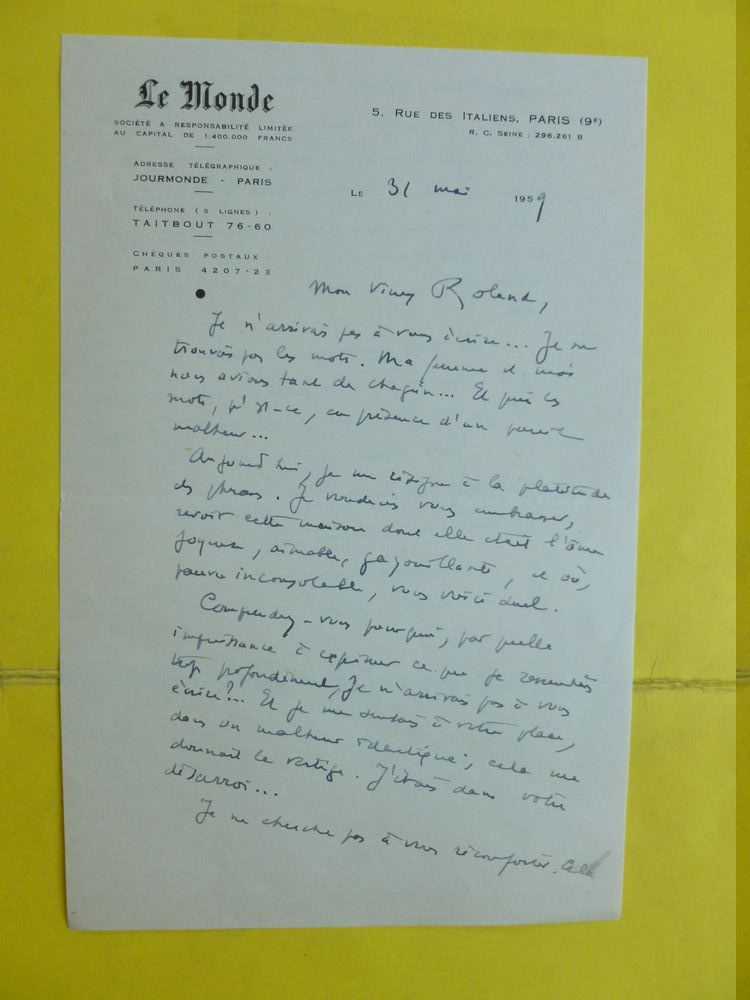 Le Monde
SOCIÉTÉ A RESPONSABILITÉ LIMITÉE
AU CAPITAL DE 1.400.000 FRANCS
5, RUE DES ITALIENS, PARIS (9ᴱ)
R. C. SEINE : 296.261 B
ADRESSE TÉLÉGRAPHIQUE :
JOURMONDE - PARIS
LE 31 mai 1959
TÉLÉPHONE (5 LIGNES) :
TAITBOUT 76-60
CHÈQUES POSTAUX
PARIS 4207-23
Mon vieux Roland,
Je n'arrivais pas à vous écrire... Je ne
trouvais pas les mots. Ma femme et moi
nous avions tant de chagrin... Et puis les
mots, qu'est-ce, en présence d'un pareil
malheur...
Aujourd'hui, je me résigne à la platitude
des phrases. Je voudrais vous embrasser,
revoir cette maison dont elle était l'âme
joyeuse, aimable, gazouillante, et où,
pauvre inconsolable, vous voici seul.
Comprenez-vous pourquoi, par quelle
impuissance à exprimer ce que je ressentais
trop profondément, je n'arrivais pas à vous
écrire?... Et je me sentais à votre place,
dans un malheur identique ; cela me
donnait le vertige. J'étais dans votre
désarroi...
Je ne cherche pas à vous réconforter. Cela